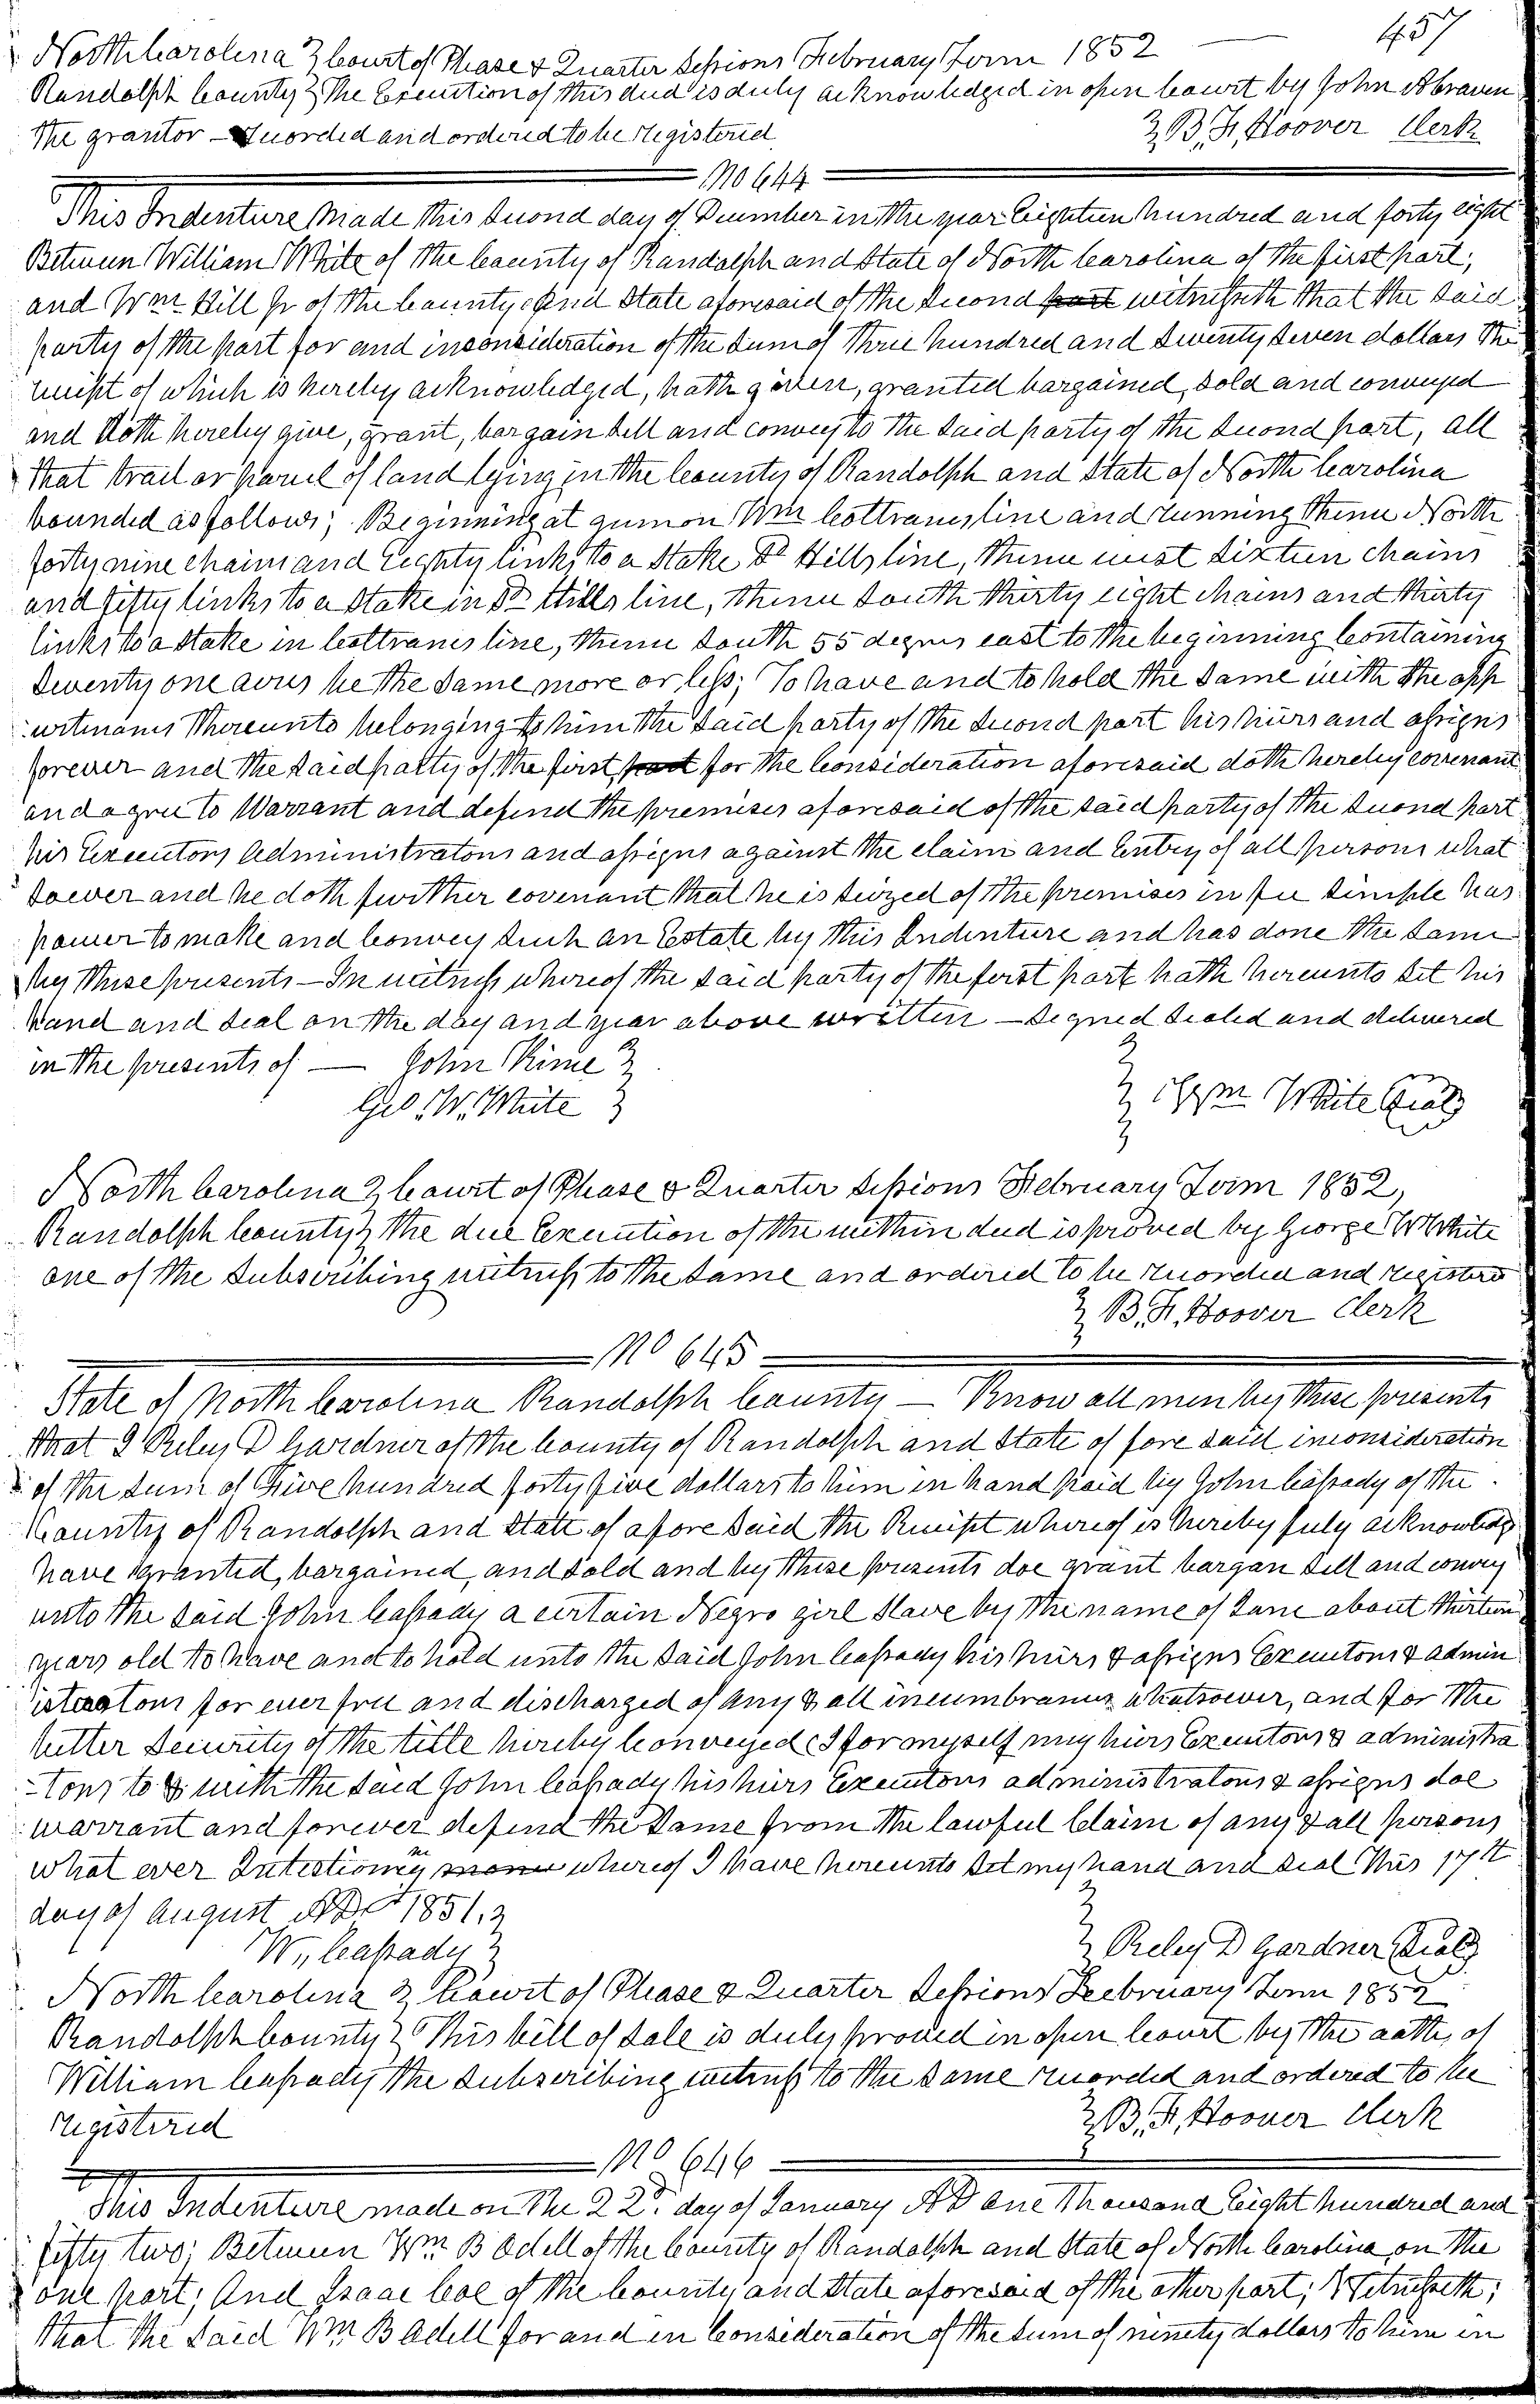 457
North Carolina } Court of Please & Quarter Sessions February Term 1852
Randolph County } The Execution of this deed is duly acknowledged in open Court by John A Craven
The grantor - Recorded and ordered to be registered } B. F. Hoover Clerk
No 644
This Indenture Made this Second day of December in the year Eighteen hundred and forty eight
Between William White of the County of Randolph and State of North Carolina of the first part,
and Wm Hill Jr of the County and State aforesaid of the Second part witnesseth that the said
party of the part for and inconsideration of the sum of Three hundred and twenty seven dollars the
receipt of which is hereby acknowledged, hath given, granted bargained, sold and conveyed
and doth hereby give, grant, bargain sell and convey to the said party of the second part, all
that tract or parcel of land lying in the County of Randolph and State of North Carolina
bounded as follows; Beginning at gum on Wm Cottranes line and running thence North
forty nine chains and Eighty links to a Stake Do Hills line, thence west sixteen chains
and fifty links to a Stake in Do Hills line, thence South thirty eight chains and thirty
links to a stake in Cottranes line, thence South 55 degrees east to the beginning Containing
Seventy one acres be the same more or less; To have and to hold the same with the app
urtenances thereunto belonging to him the said party of the second part his heirs and assigns
forever and the said party of the first part for the Consideration aforesaid doth hereby covenant
and agree to Warrant and defend the premises aforesaid of the said party of the second part
his Executors Administrators and assigns against the claim and Entry of all persons what
soever and he doth further covenant that he is seized of the premises in fee simple has
power to make and Convey such an Estate by this Indenture and has done the same
by these presents - In witness whereof the said party of the first part hath hereunto set his
hand and seal on the day and year above written - Signed sealed and delivered
in the presents of — John Kime }
Geo. W. White } } Wm White Seal
North Carolina } Court of Please & Quarter Sessions February Term 1852,
Randolph County } The due Execution of the within deed is proved by George W White
one of the Subscribing witness to the same and ordered to be recorded and registered
} B. F. Hoover Clerk
No 645
State of North Carolina Randolph County — Know all men by these presents
that I Reley D Gardner of the County of Randolph and State of fore said inconsideration
of the sum of Five hundred forty five dollars to him in hand paid by John Cassady of the
County of Randolph and State of afore said the Receipt whereof is hereby fuly acknowledg
have granted, bargained, and sold and by these presents doe grant bargan sell and convey
unto the said John Cassady a certain Negro girl Slave by the name of Jane about thirteen
years old to have and to hold unto the said John Cassady his heirs & assigns Executors & admin
istrators for ever free and discharged of any & all incumbrances whatsoever, and for the
better Security of the title hereby Conveyed I for myself my heirs Executors & administra
-tors to & with the said John Cassady his heirs Executors administrators & assigns doe
warrant and forever defend the same from the lawful Claim of any & all persons
what ever Intestiony whereof I have hereunto set my hand and seal this 17th
day of August AD 1851.
W., Cassady } } Reley D Gardner Seal
North Carolina } Court of Please & Quarter Sessions Feebruary Term 1852
Randolph County } This bill of Sale is duly proved in open Court by the oath, of
William Cassady the Subscribing witness to the same recorded and ordered to be
registered } B. F. Hoover Clerk
No 646
This Indenture made on the 22d. day of January AD one Thousand Eight hundred and
fifty two; Between Wm B Odell of the County of Randolph and State of North Carolina on the
one part; And Isaac Cox of the County and State aforesaid of the other part; Witnesseth;
that the said Wm B Odell for and in Consideration of the sum of ninety dollars to him in